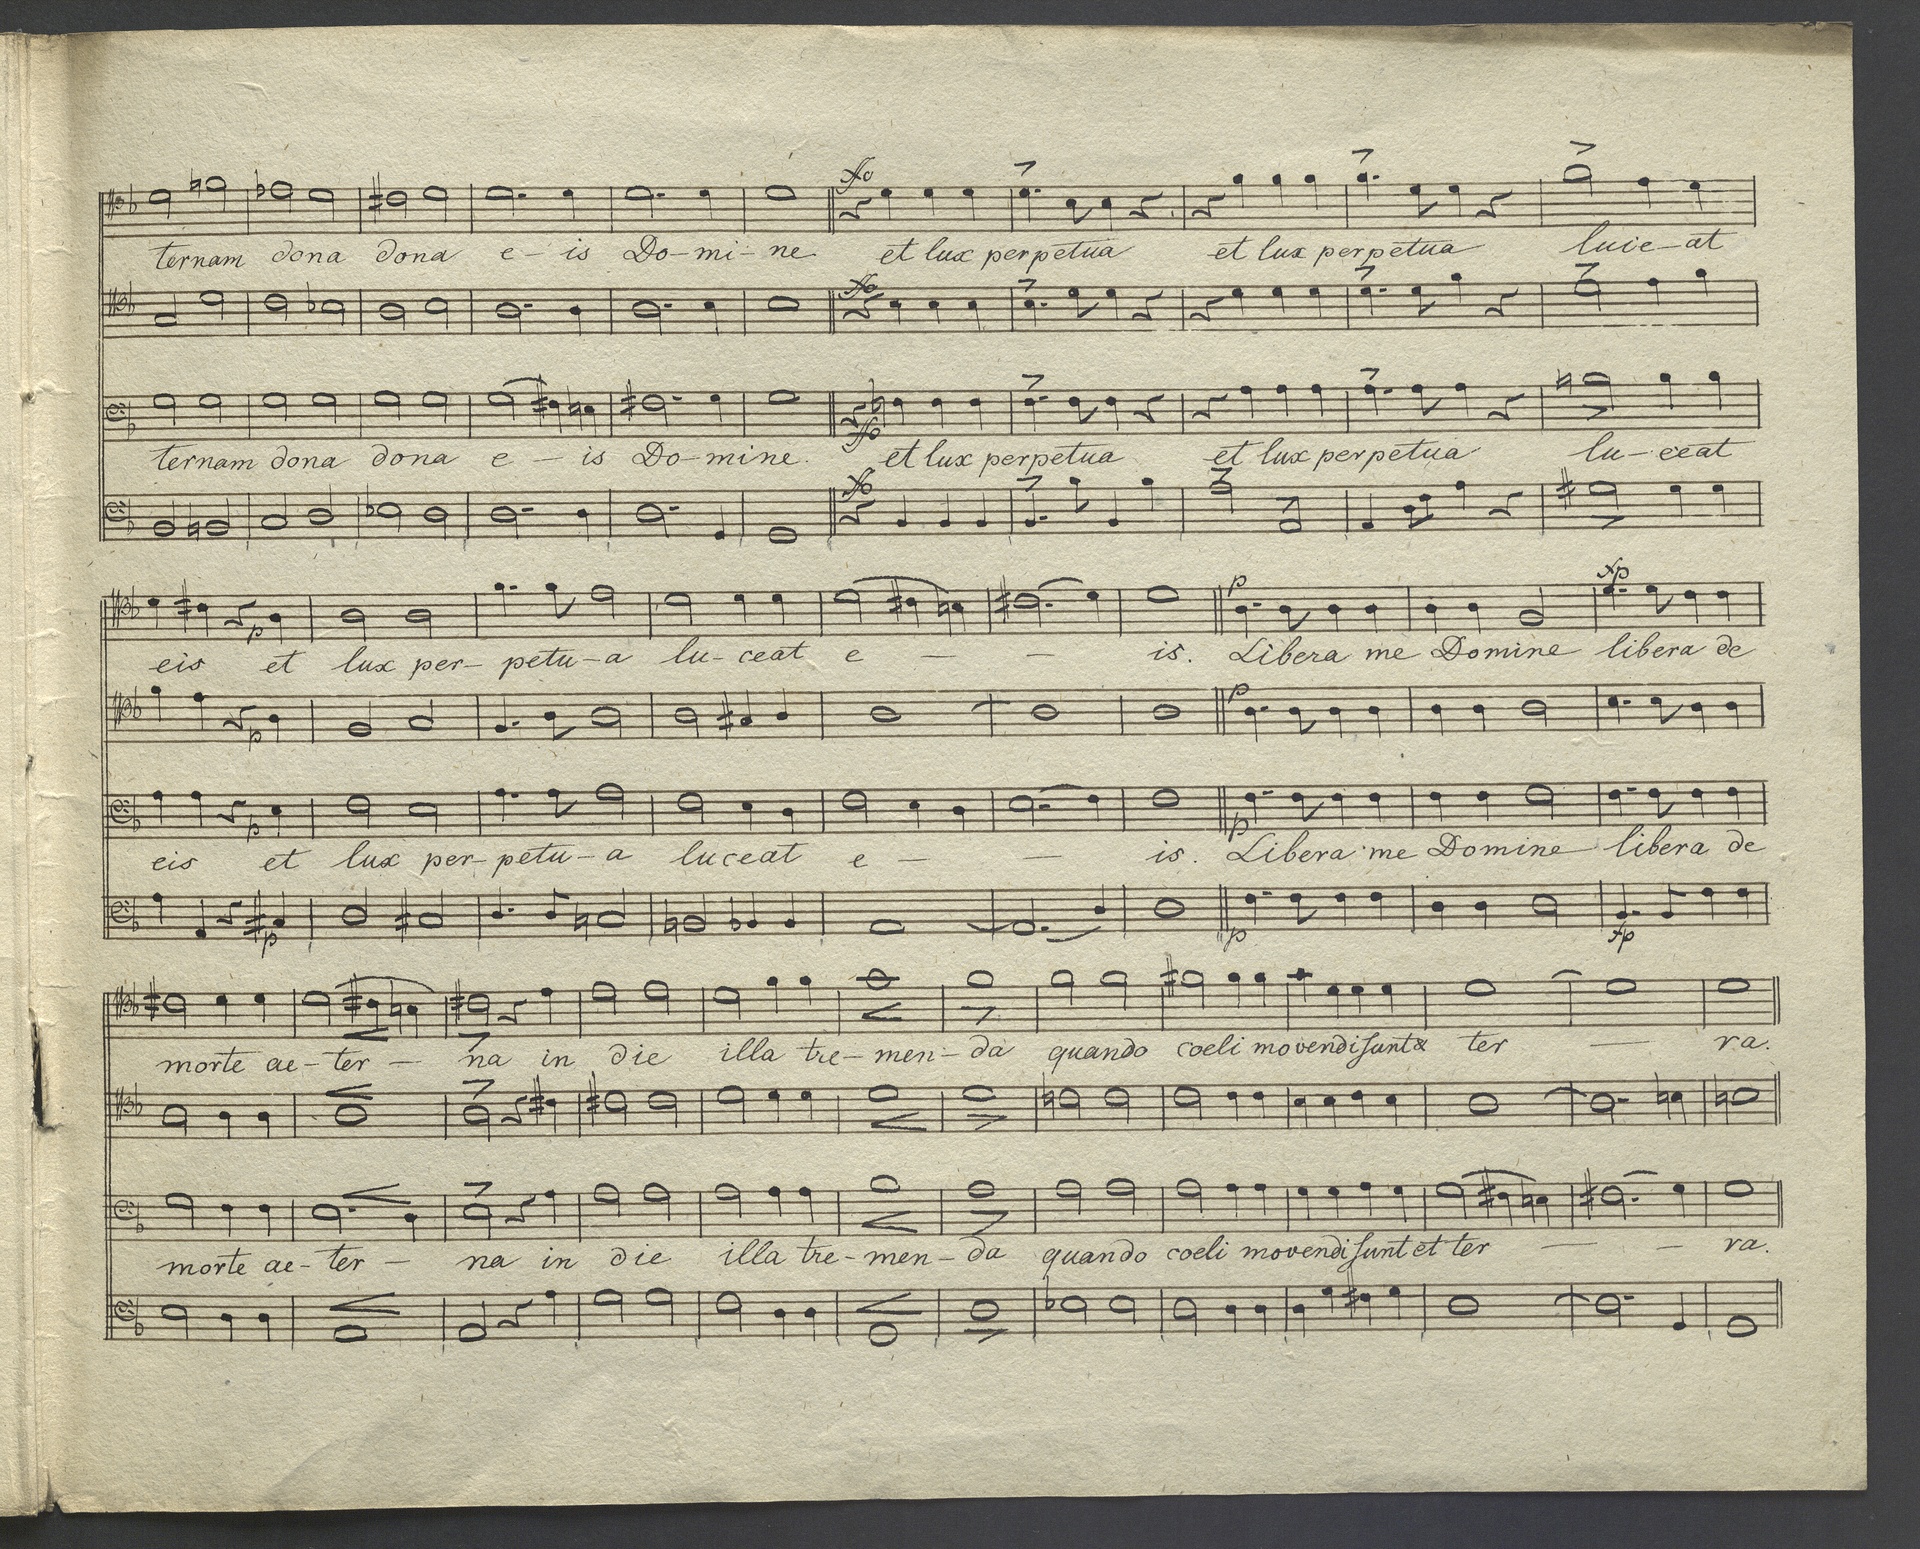 fo
ternam dona dona e - is Do - mi - ne et lux perpetua et lux perpetua luie - at
fo
fo
ternam dona dona e - is Do - mine. et lux perpetua et lux perpetua lu - ceat
fo
p fp
eis et lux per - petu - a lu - ceat e - - is. Libera me Domine libera de
p
p p
eis et lux per - petu - a luceat e - - is. Libera me Domine libera de
p p fp
morte ae - ter - na in die illa tre - men - da quando coeli movendi sunt & ter - ra.
morte ae - ter - na in die illa tre - men - da quando coeli movendi sunt et ter - - ra.